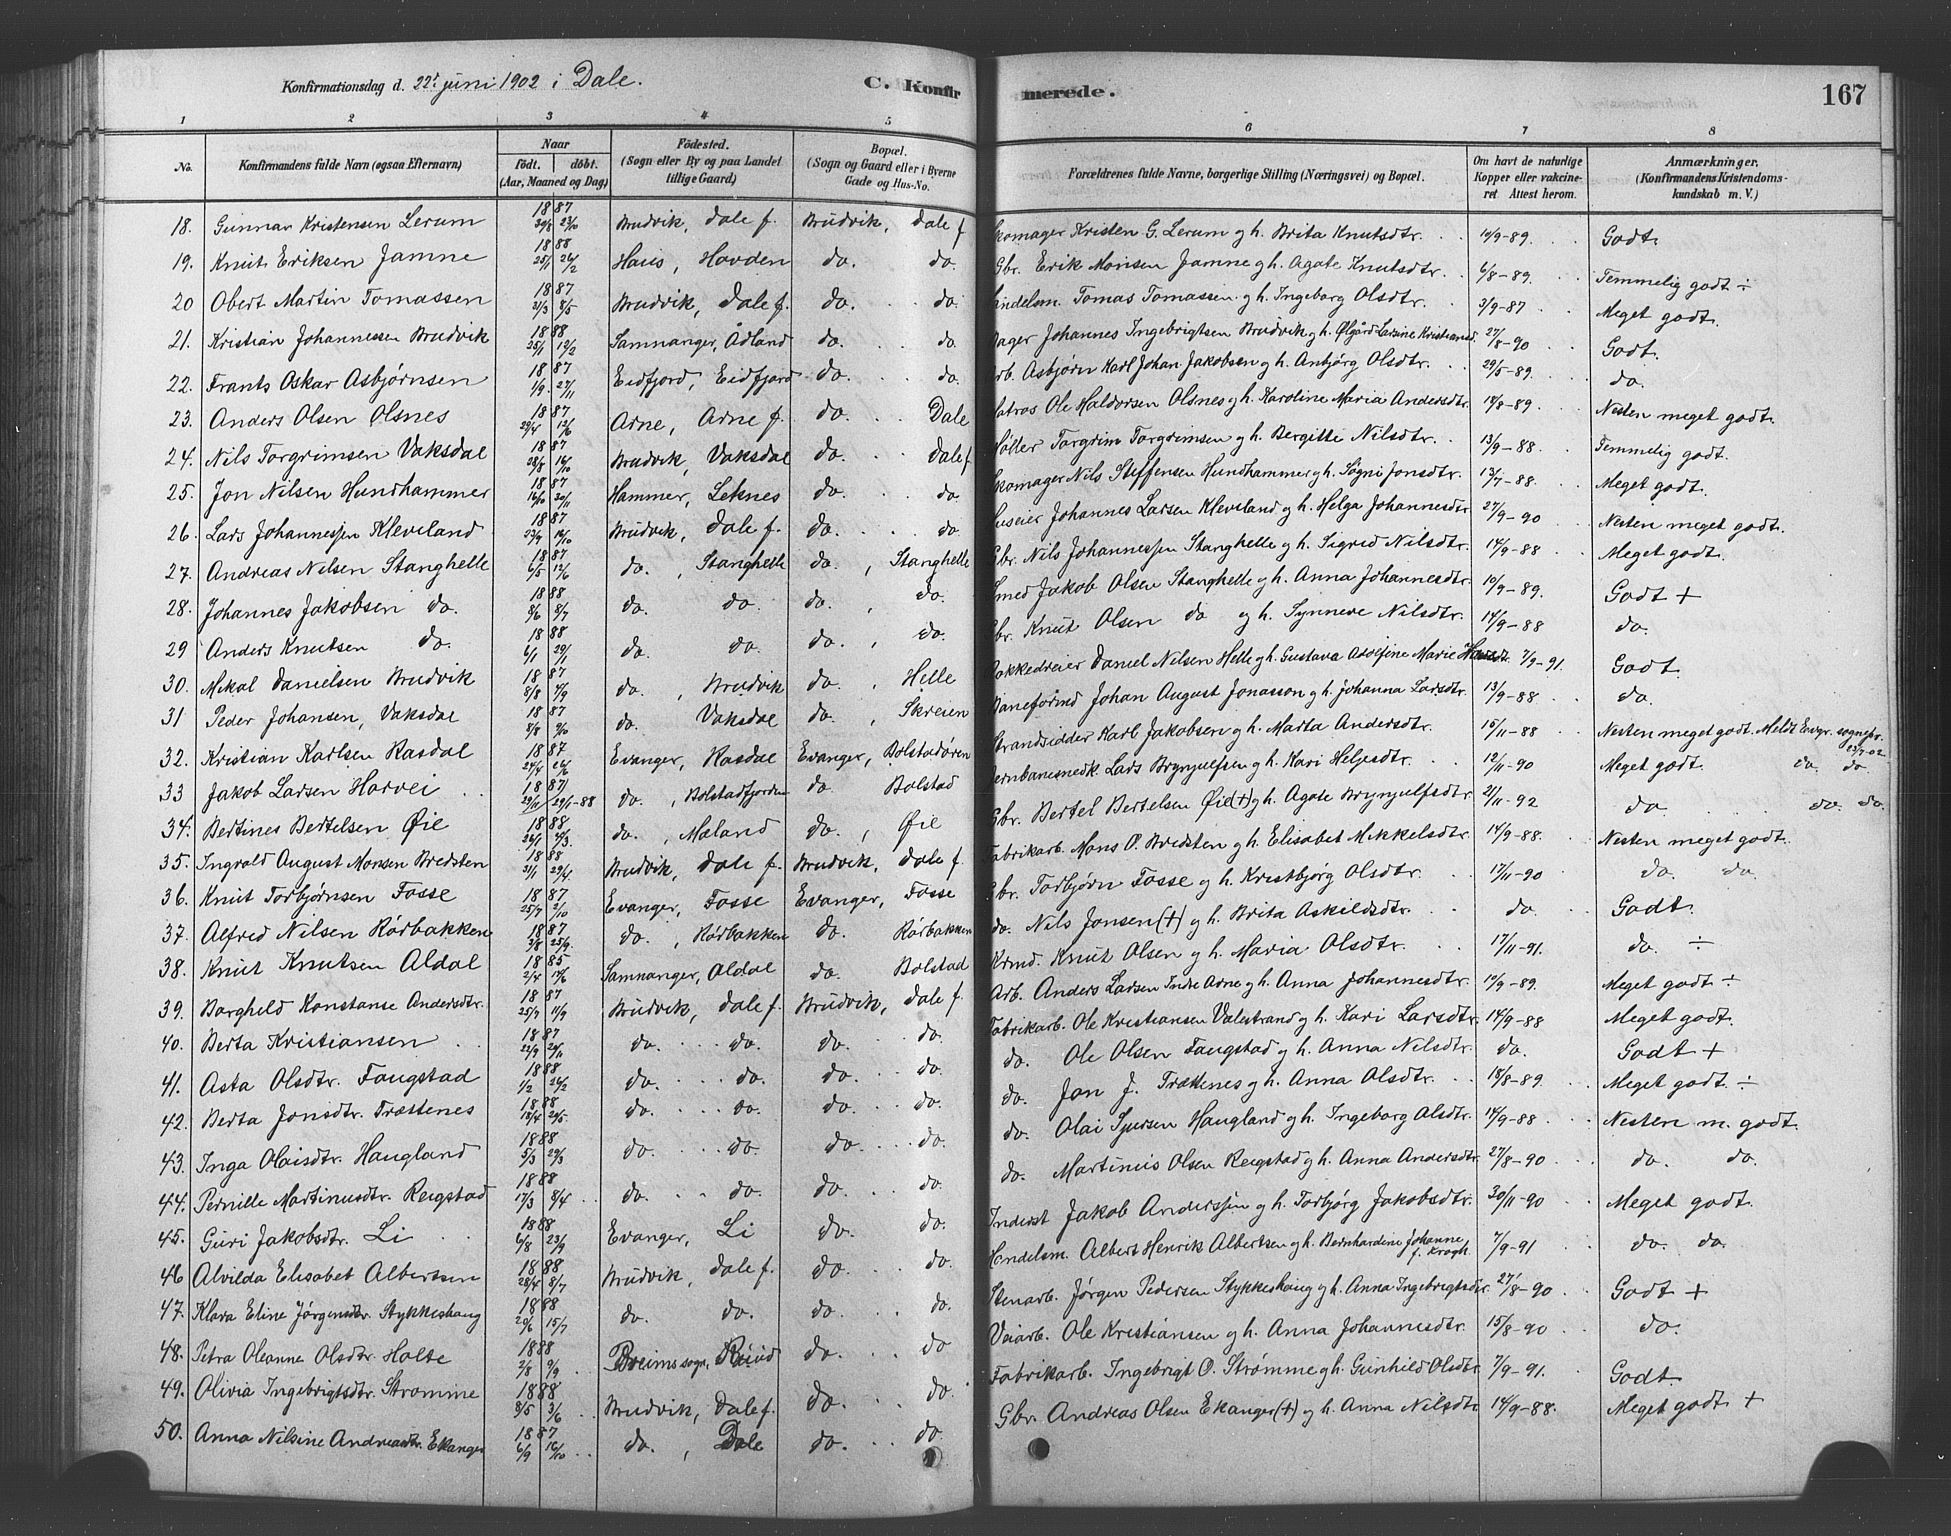 Konfirmationsdag d. 22de juni 1902 i Dale.
C. Konfirmerede.
167
1 2 3 4 5 6 7 8
No. | Konfirmandens fulde Navn (ogsaa Efternavn) | Naar födt. döbt. (Aar, Maaned og Dag) | Födested. (Sogn eller By og paa Landet tillige Gaard) | Bopæl. (Sogn og Gaard eller i Byerne Gade og Hus-No. | Forældrenes fulde Navne, borgerlige Stilling (Næringsvei) og Bopæl. | Om havt de naturlige Kopper eller vakcineret Attest herom. | Anmærkninger. (Konfirmandens Kristendomskundskab m. V.)
18. Gunnar Kristensen Lerum 1887 30/8 23/10 Brudvik, Dale f. Brudvik, Dale f Skomager Kristen G. Lerum og h. Brita Knutsdtr. 10/9-89. Godt.
19. Knut Eriksen Jamne 1888 25/1 26/2 Haus, Hovden do. do. Gbr. Erik Monsen Jamne og h. Agate Knutsdtr. 6/8-89. Temmelig godt ÷
20 Obert Martin Tomassen 1887 21/3 8/5 Brudvik, Dale f. do. do. Handelsm. Tomas Tomassen og h. Ingeborg Olsdtr. 3/9-87 Meget godt.
21. Kristian Johannessen Brudvik 1888 25/1 12/2 Samnanger, Ådland do. do. Bager Johannes Ingebrigtsen Brudvik og h. Ølgård Larsine Kristiansd. 27/8-90 Godt.
22. Frants Oskar Asbjørnsen 1887 1/9 27/11 Eidfjord, Eidfjord do. do. Arb. Asbjørn Karl Johan Jakobsen og h. Anbjörg Olsdtr. 29/5-89. do.
23. Anders Olsen Olsnes 1887 29/4 12/6 Arne, Arne f. do. Dale Matros Ole Haldorsen Olsnes og h. Karoline Maria Andersdtr. 18/8-89. Nesten meget godt.
24. Nils Torgrimsen Vaksdal 1887 28/8 16/10 Brudvik, Vaksdal do. Dale f Møller Torgrim Torgrimsen og h. Bergitte Nilsdtr. 13/9-88 Temmelig godt.
25. Jon Nilsen Hundhammer 1887 16/10 20/11 Hammer, Leknes do. do. Skomager Nils Steffensen Hundhammer og h. Signi Jonsdtr. 13/7-88. Meget godt.
26. Lars Johannessen Kleveland 1887 23/9 16/10 Brudvik, Dale f. do. do Huseier Johannes Larsen Kleveland og h. Helga Johannesdtr 27/9-90 Nesten meget godt.
27. Andreas Nilsen Stanghelle 1887 6/5 12/6 do. , Stanghelle do. , Stanghelle Gbr. Nils Johannessen Stanghelle og h. Sigrid Nilsdtr. 14/9-88 Meget godt.
28. Johannes Jakobsen do. 1888 8/6 8/7 do. do. do. , do. Smed Jakob Olsen Stanghelle og h. Anna Johannesdtr. 10/9-89. Godt +
29 Anders Knutsen do. 1888 6/1 29/1 do. do. do. , do. Gbr. Knut Olsen do og h. Synneve Nilsdtr. 14/9-88 do.
30. Mikal Danielsen Brudvik 1887 8/8 4/9 do. , Brudvik do. , Helle Rokkedreier Daniel Nilsen Helle og h. Gustava Adolfine Marie 7/9-91. Godt.
31 Peder Johansen, Vaksdal 1887 8/8 9/10 do. Vaksdal do. , Skreien Baneførmd Johan August Jonasson og h. Johanna Larsdtr. 13/9-88 do.
32. Kristian Karlsen Rasdal 1887 24/4 26/6 Evanger, Rasdal Evanger, Bolstadøren Strandsidder Karl Jakobsen og h. Marta Andersdtr. 15/11-88 Nesten meget godt. Meldt Evgr. sognepr. 23/7-02
33 Jakob Larsen Horvei 1887 29/11 29/1-88 do. , Bolstadfjorden do. Bolstad Jernbanesmedk. Lars Brynjulfsen og h. Kari Helgesdtr. 12/11-90 Meget godt do. do.
34. Bertines Bertelsen Øie 1888 26/1 4/3. do. , Mæland do. , Øie Gbr. Bertel Bertelsen Øie(+) og h. Agate Brynjulfsdtr. 21/11-92 do. do. do.
35. Ingvald August Monsen Bredsten 1888 31/1 29/4. Brudvik, Dale f. Brudvik, Dale f. Fabrikarb. Mons O. Bredsten og h. Elisabet Mikkelsdtr. 14/9-88. Nesten meget godt.
36. Knut Torbjørnsen Fosse 1887 25/7 2/10 Evanger, Fosse Evanger, Fosse Gbr. Torbjørn Fosse og h. Kristbjørg Olsdtr. 17/11-90 do. do.
37. Alfred Nilsen Rörbakken 1887 3/8 25/9. do. , Rörbakken do. Rörbakken do. Nils Jonsen(+) og h. Brita Askildsdtr. do. Godt.
38. Knut Knutsen Aldal 1885 2/4 14/6 Samnanger, Aldal do. Bolstad Krmd. Knut Olsen og h. Maria Olsdtr. 17/11-91. do. ÷
39. Borghild Konstanse Andersdtr. 1887 25/7 11/9 Brudvik, Dale f. Brudvik, Dale f. Arb. Anders Larsen Indre Arne og h. Anna Johannesdtr. 10/9-89. Meget godt ÷
40. Berta Kristiansen 1887 22/9 20/11 do. do. do. do. Fabrikarb. Ole Kristiansen Valestrand og h. Kari Larsdtr. 14/9-88 Meget godt.
41. Asta Olsdtr. Faugstad 1888 1/2 26/2 do. do. do. do. do. Ole Olsen Faugstad og h. Anna Nilsdtr. do. Godt +
42. Berta Jonsdtr. Trættenes 1888 18/4 20/5. do. do. do. do. do. Jon J. Trættenes og h. Anna Olsdtr. 18/8-89. Meget godt ÷
43. Inga Olaisdtr. Haugland 1888 5/3 29/3 do. do. do. do. do. Olai Sjursen Haugland og h. Ingeborg Olsdtr. 14/9-88 Nesten m. godt.
44. Pernille Martinusdtr. Reigstad 1888 17/3 8/4 do. do. do. do. do. Martinus Olsen Reigstad og h. Anna Andersdtr. 27/8-90 do. do.
45. Guri Jakobsdtr. Li 1888 6/8 23/9 Evanger, Li do. do. Inderst Jakob Anderssen og h. Torbjørg Jakobsdtr. 30/11-90 Meget godt.
46 Alvilda Elisabet Albertsen 1888 28/4 8/7 Brudvik, Dale f. do. do. Handelsm. Albert Henrik Albertsen og h. Bernhardine Johanne f. Krogh. 7/9-91 do. do.
47. Klara Eline Jörgensdtr. Stykkeshaug 1888 20/6 15/7 do. do. do. do. Stenarb. Jörgen Pedersen Stykkeshaug og h. Anna Ingebrigtsdtr 27/8-90 Godt +
48. Petra Oleanne Olsdtr. Holte 1888 2/8 9/9 Breims sogn, do. do Veiarb. Ole Kristiansen og h. Anna Johannesdtr. 15/8-90 do.
49. Olivia Ingebrigtsdtr. Strømme 1888 8/5 3/6 Brudvik, Dale f. do. do. Fabrikarb. Ingebrigt O. Strømme og h. Gunhild Olsdtr. 7/9-91. Godt.
50. Anna Nilsine Andreasdtr. Ekanger 1887 6/9 16/10 do. , Dale do. do. Gbr. Andreas Olsen Ekanger(+) og h. Anna Nilsdtr 14/9-88. Meget godt +